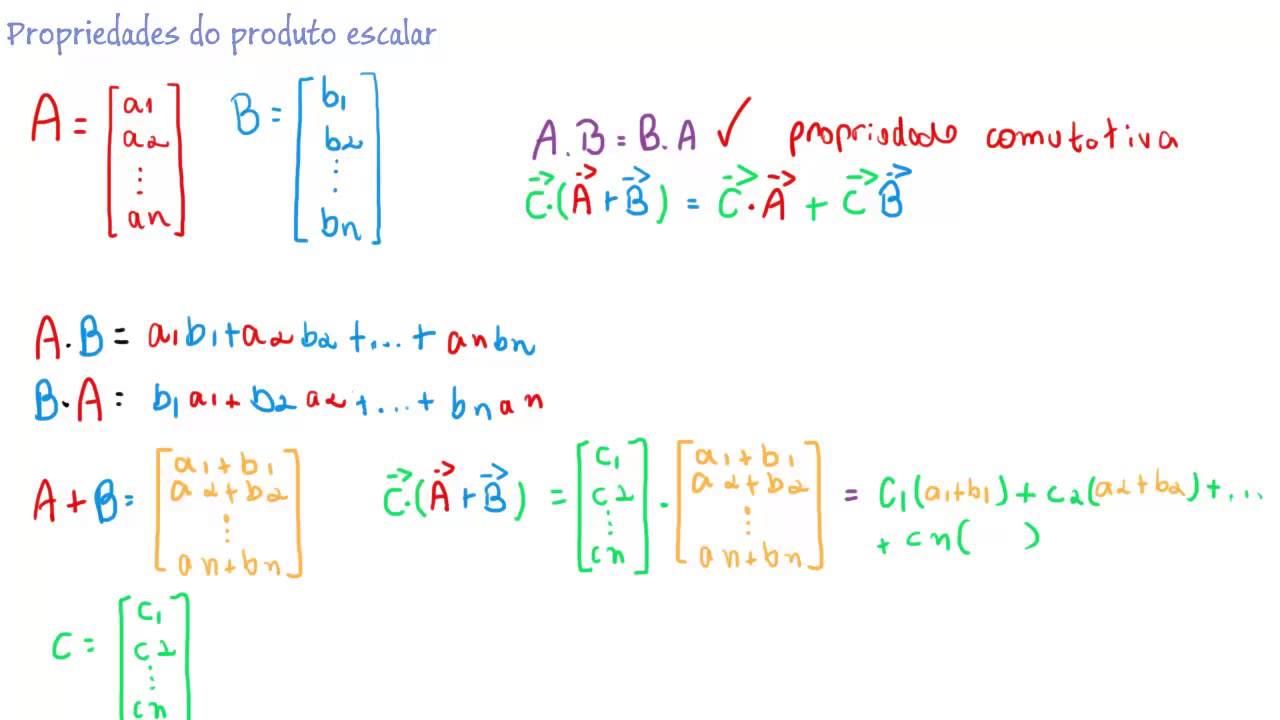 Propriedades do produto escalar
A = [a1 a2 ⋮ an] B = [b1 b2 ⋮ bn]
A.B = B.A ✓ propriedade comutativa
C⃗.(A⃗+B⃗) = C⃗.A⃗ + C⃗ B⃗
A.B = a1b1+a2b2+...+ anbn
B.A = b1a1+b2a2+...+ bnan
A+B = [a1+b1 a2+b2 ⋮ an+bn] C⃗.(A⃗+B⃗) = [c1 c2 ⋮ cn] . [a1+b1 a2+b2 ⋮ an+bn] = C1(a1+b1)+c2(a2+b2)+...
+ cn( )
C = [c1 c2 ⋮ cn]